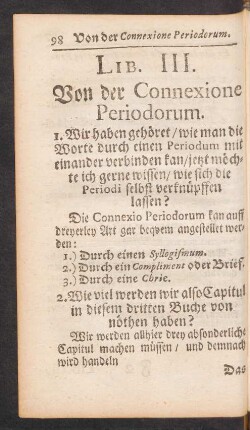 98 Von der Connexione Periodorum.
LIB. III.
Von der Connexione
Periodorum.
1. Wir haben gehöret / wie man die
Worte durch einen Periodum mit
einander verbinden kan / jetzt möch-
te ich gerne wissen / wie sich die
Periodi selbst verknüpffen
lassen?
Die Connexio Periodorum kan auff
dreyerley Art gar beqvem angestellet wer-
den:
1.) Durch einen Syllogismum.
2.) Durch ein Compliment oder Brief.
3.) Durch eine Chrie.
2. Wie viel werden wir also Capitul
in diesem dritten Buche von
nöthen haben?
Wir werden allhier drey absonderliche
Capitul machen müssen / und demnach
wird handeln
Das